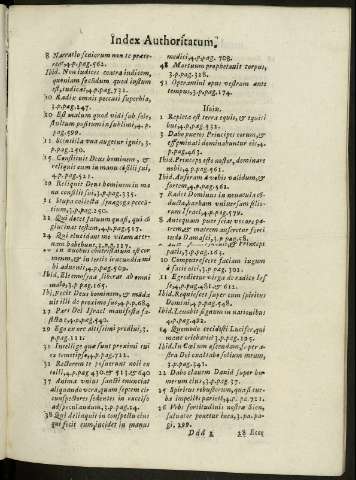 Index Authoritatum.
8 Narratio seniorum non te præte-
reat, 4.p.pag.562.
Ibid. Non iudices contra iudicem,
quoniam secundum quod iustum
est, iudicat, 4.p.pag.731.
10 Radix omnis peccati superbia,
3.p.pag.247.
20 Est malum quod vidi sub sole,
stultum positum in sublimi, 4.p.
pag.599.
21 Scintilla vna augetur ignis, 3.
p.pag.250.
15 Constituit Deus hominem, &
reliquit eum in manu consilij sui,
4.p.pag.521.
Reliquit Deus hominem in ma
nu consilij sui, 3.p.pag.335.
21 Stupa collecta synagoga pecca-
tium, 3.p.pag.250.
22 Qui docet fatuum quasi, qui co
glutinat testam, 4.p.pag.517.
24 Qui elucidant me vitam æter-
nam habebunt, 3.p.pag.327.
bi aduenit, 4.p.pag.509.
Ibid. Elemosyna liberat ab omni
malo, 3.p.pag.195.
Ibid. Fecit Deus hominem, & mãda
uit illi de proximo suo, 4.p.p.684
27 Pars Dei Israel manifesta fa-
29 Ego exore altissimi prodiui, 3.
p.pag.111.
31 Intellige quæ sunt proximi tui
ex temetipso, 4.p.pag.722.
31 Recterem te posuerunt noli ex-
tolli, 4.p.pag.430. & 513. & 640
37 Anima viri sancti enuntiat
aliquando vera, quam septem cir-
cunspectores sedentes in excelso
ad speculandum, 3.p.pag.24.
38 Qui delinquit in conspectu eius
qui fecit eum, incidet in manus
medici, 4.p.pag.708.
48 Mortuum prophetauit corpus,
3.p.pag.328.
51 Operamini opus vestrum ante
tempus, 3.p.pag.174.
Isaiæ.
1 Repleta est terra equis, &
bus, 4.p.pag.532.
3 Dabo pueros Principes eorum, &
effeminati dominabuntur eis, 4.
p.pag.463.
Ibid. Princeps esse noster, dominare
nobis, 4.p.pag.561.
Ibid. Auferam à vobis validum, &
fortem, 4.p.pag.561.
7 Radet Dominus in nouacula cõ-
ducta, barbam vniuersam filio-
rum Israel, 4.p.pag.579.
8 Antequam puer sciat vocare pa-
trem, & matrem auferetur forti
tudo Damasci, 3.p.pag.68.
pacis, 3.p.pag.163.
10
à facie olei, 3.p.pag.302.
11 Egredietur virga de radice Ies-
se, 4.p.pag.481. & 611.
Ibid. Requiescet super eum spiritus
Domini, 4.p.pag.548.
Ibid. Leuabit signum in nationibus
4.p.pag.492.
14 Quomodo cecidisti Lucifer, qui
mane oriebaris, 3.p.pag.105.
Ibid. In Cœlum ascendam, super a-
stra Dei exaltabo solium meum,
3.p.pag.341.
22 Dabo clauem Dauid super hu-
merum eius, 3.p.pag.37.
25 Spiritus robustorum, quasi tur-
bo impellens parietem, 4.p.pa.721.
26 Vrbs fortitudinis nostræ Sion,
saluator ponetur in ea, 3.pa.pa-
gi.299.
Ddd 2 28 Ecce